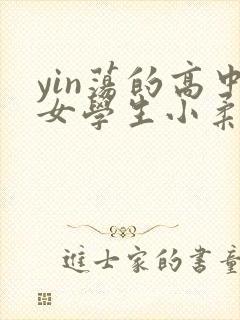 yin蕩的高中
女學生小柔
進士家的書童